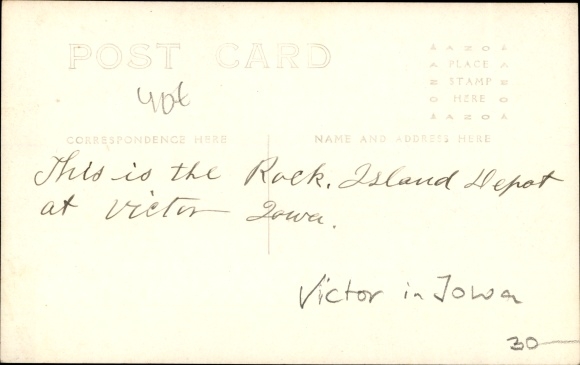 POST CARD
AZOA
PLACE
STAMP
HERE
AZOA
40¢
CORRESPONDENCE HERE
NAME AND ADDRESS HERE
This is the Rock. Island Depot
at Victor Iowa.
Victor in Iowa
30